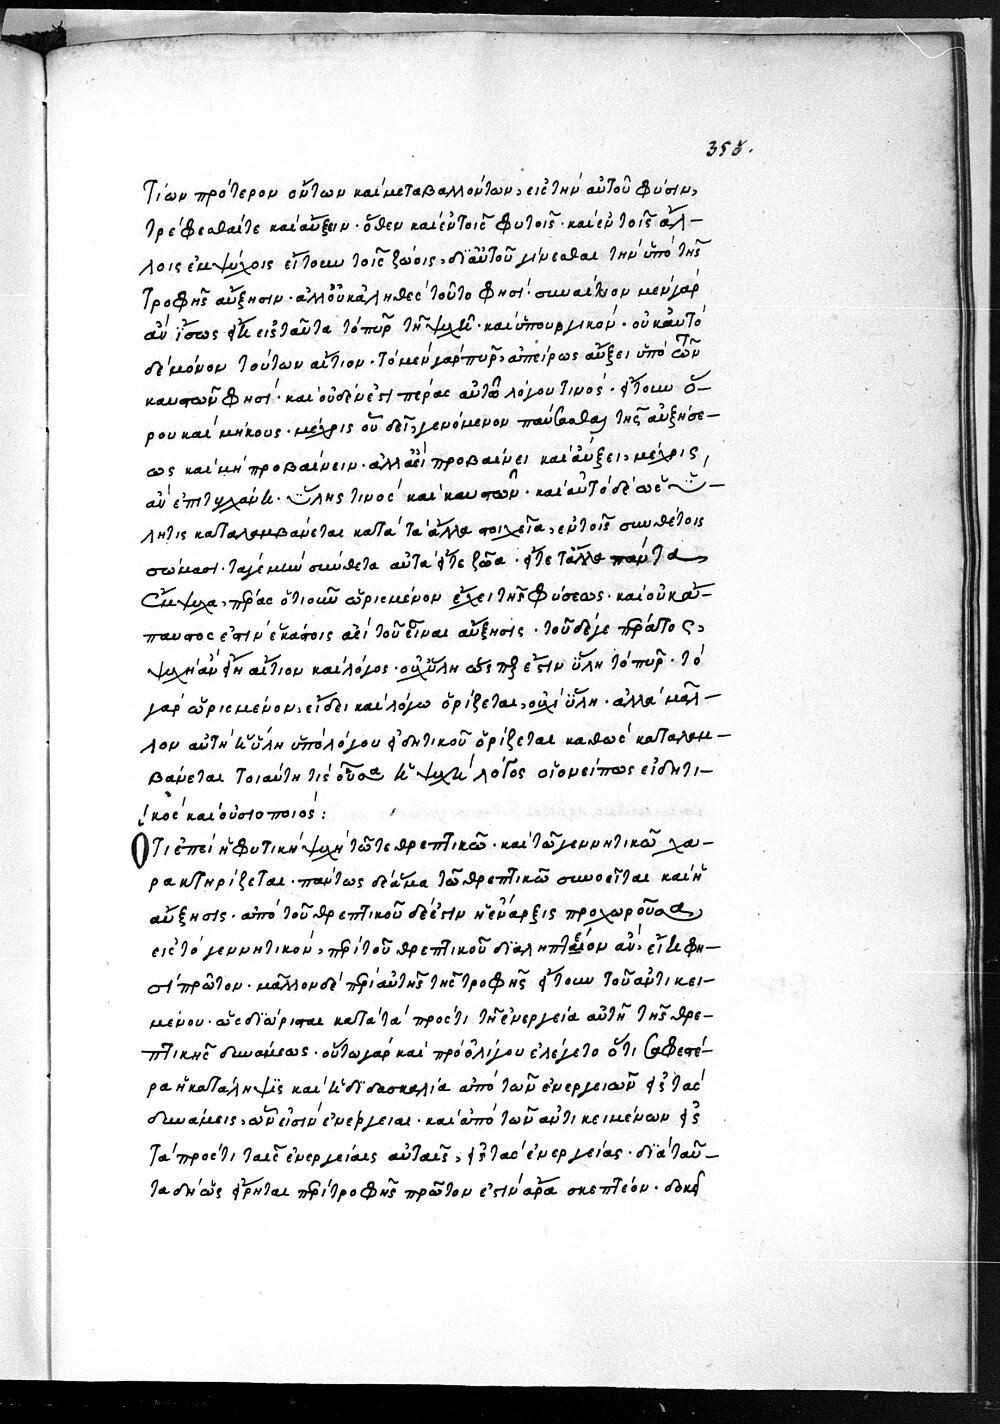 355.
τίων πρότερον ὄντων καὶ μεταβαλλόντων, εἰς τὴν αὐτοῦ φύσιν,
τρέφεσθαί τε καὶ αὔξειν. ὅθεν καὶ ἐν τοῖς φυτοῖς. καὶ ἐν τοῖς ἄλ-
λοις ἐμψύχοις ἤτοι τοῖς ζώοις, δι' αὐτοῦ γίνεσθαι τὴν ὑπὸ τῆς
τροφῆς αὔξησιν. ἀλλ' οὐκ ἀληθὲς τοῦτο φησί. συναίτιον μὲν γὰρ
ἂν ἴσως εἴη εἰς ταῦτα τὸ πῦρ τῇ ψυχῇ. καὶ ὑπουργικόν. οὐκ αὐτὸ
δὲ μόνον τούτων αἴτιον. τὸ μὲν γὰρ πῦρ, ἀπείρως αὔξει ὑπὸ τῶν
καυστῶν φησί. καὶ οὐδέν ἐστι πέρας αὐτῶ λόγου τινός. ἤτοι ὅ-
ρου καὶ μήκους. μέχρις οὗ δεῖ, γενόμενον παύσασθαι τῆς αὐξήσε-
ως καὶ μὴ προβαίνειν. ἀλλ' ἀεὶ προβαίνει καὶ αὔξει, μέχρις,
ἂν ἐπιτυγχάνη. ὕλης τινὸς καὶ καυστῶν. καὶ αὐτὸ δὲ ὡς ὕ-
λη τις καταλαμβάνεται κατὰ τὰ ἄλλα στοιχεῖα, ἐν τοῖς συνθέτοις
σώμασι. τὰ γέ μὴν σύνθετα αὐτὰ εἴτε ζῶα. εἴτε τἄλλα πάντα
ἔμψυχα, πέρας ὁτιοῦν ὡρισμένον ἔχει τῆς φύσεως. καὶ οὐκ ἄ-
παυστος ἐστὶν ἑκάστοις ἀεὶ τοῦ εἶναι αὔξησις. τοῦ δέ γε πέρατος,
ψυχὴ ἂν εἴη αἴτιον καὶ λόγος. οὐχ ὕλη ὥσπερ ἐστὶν ὕλη τὸ πῦρ. τὸ
γὰρ ὡρισμένον, εἴδει καὶ λόγω ὁρίζεται, οὐχὶ ὕλη. ἀλλὰ μᾶλ-
λον αὐτὴ ἡ ὕλη ὑπὸ λόγου εἰδητικοῦ ὁρίζεται καθὼς καταλαμ-
βάνεται τοιαύτη τὶς οὖσα ἡ ψυχὴ λόγος οἱονεί πως εἰδητι-
κὸς καὶ οὐσιοποιός:
Ὅτι ἐπεὶ ἡ φυτικὴ ψυχὴ τῶ τε θρεπτικῶ. καὶ τῶ γεννητικῶ χα-
ρακτηρίζεται. πάντως δὲ ἅμα τῶ θρεπτικῶ συνοεῖται καὶ ἡ
αὔξησις. ἀπὸ τοῦ θρεπτικοῦ δὲ ἐστὶν ἡ ἔναρξις προχωροῦσα,
εἰς τὸ γεννητικόν, περὶ τοῦ θρεπτικοῦ διαληπτέον ἂν, εἴη φη-
σὶ πρῶτον. μᾶλλον δὲ περὶ αὐτῆς τῆς τροφῆς ἤτοι τοῦ ἀντικει-
μένου. ὡς διώρισται κατὰ τὰ πρὸς ἔτι τῆ ἐνεργεία αὐτῆ τῆς θρε-
πτικῆς δυνάμεως. οὕτω γὰρ καὶ πρὸ ὀλίγου ἐλέγετο ὅτι σαφεστέ-
ρα ἡ κατάληψις καὶ ἡ διδασκαλία ἀπὸ τῶν ἐνεργειῶν εἰς τὰς
δυνάμεις, ὧν εἰσὶν ἐνέργειαι. καὶ ἀπὸ τῶν ἀντικειμένων εἰς
τὰ πρὸς ἔτι ταῖς ἐνεργείαις αὐταῖς, εἰς τὰς ἐνεργείας. διὰ ταῦ-
τα δὴ ὡς εἴρηται περὶ τροφῆς πρῶτον ἐστὶν ἄρα σκεπτέον. δοκεῖ